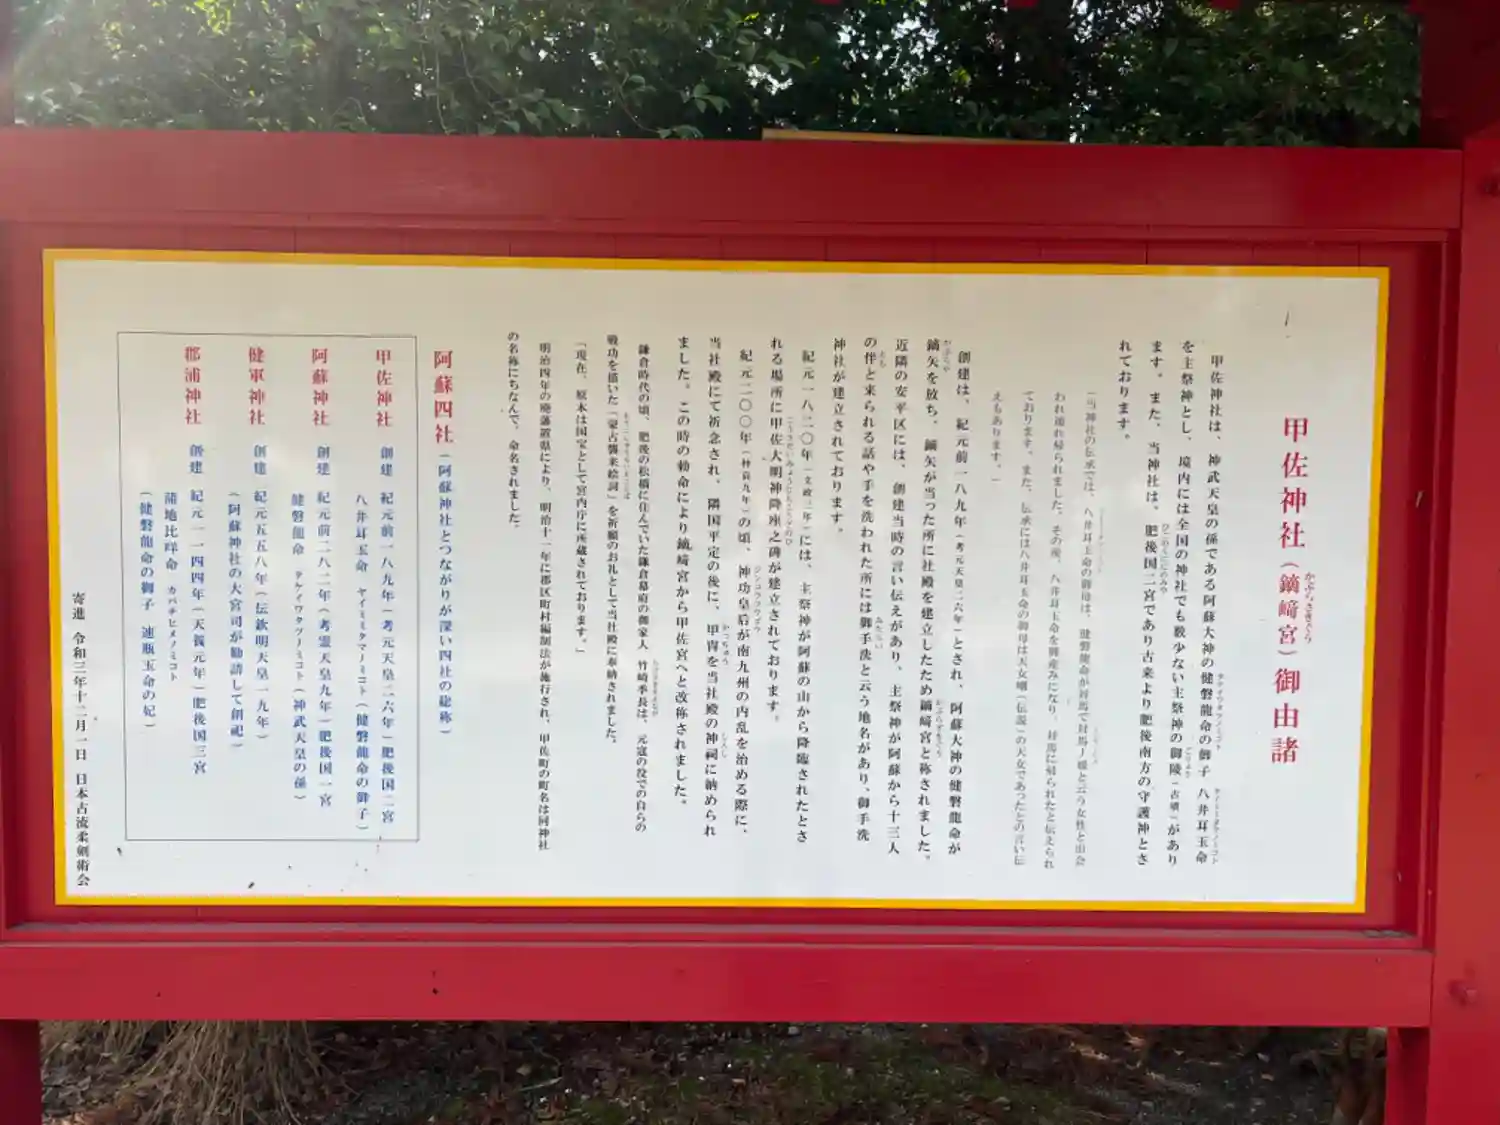 甲佐神社（鏑﨑宮）御由諸
甲佐神社は、神武天皇の孫である阿蘇大神の健磐龍命の御子 八井耳玉命
を主祭神とし、境内には全国の神社でも数少ない主祭神の御陵（古墳）があり
ます。また、当神社は、肥後国二宮であり古来より肥後南方の守護神とさ
れております。
（当神社の伝承では、八井耳玉命の御母は、健磐龍命が対馬で対馬ノ媛と云う女性と出会
われ連れ帰られました。その後、八井耳玉命を御産みになり、対馬に帰られたと伝えられ
ております。また、伝承には八井耳玉命の御母は天女嬢（伝説）の天女であったとの言い伝
えもあります。）
創建は、紀元前一八九年（考元天皇二六年）とされ、阿蘇大神の健磐龍命が
鏑矢を放ち、鏑矢が当った所に社殿を建立したため鏑﨑宮と称されました。
近隣の安平区には、創建当時の言い伝えがあり、主祭神が阿蘇から十三人
の伴と来られる話や手を洗われた所には御手洗と云う地名があり、御手洗
神社が建立されております。
紀元一八二〇年（文政三年）には、主祭神が阿蘇の山から降臨されたとさ
れる場所に甲佐大明神降座之碑が建立されております。
紀元二〇〇年（仲哀九年）の頃、神功皇后が南九州の内乱を治める際に、
当社殿にて祈念され、隣国平定の後に、甲冑を当社殿の神祠に納められ
ました。この時の勅命により鏑﨑宮から甲佐宮へと改称されました。
鎌倉時代の頃、肥後の松橋に住んでいた鎌倉幕府の御家人 竹崎季長は、元寇の役での自らの
戦功を描いた「蒙古襲来絵詞」を祈願のお礼として当社殿に奉納されました。
「現在、原本は国宝として宮内庁に所蔵されております。」
明治四年の廃藩置県により、明治十一年に郡区町村編制法が施行され、甲佐町の町名は同神社
の名称にちなんで、命名されました。
阿蘇四社（阿蘇神社とつながりが深い四社の総称）
甲佐神社 創建 紀元前一八九年（考元天皇二六年）肥後国二宮
八井耳玉命 ヤイミミタマノミコト（健磐龍命の御子）
阿蘇神社 創建 紀元前二八二年（考霊天皇九年）肥後国一宮
健磐龍命 タケイワタツノミコト（神武天皇の孫）
健軍神社 創建 紀元五五八年（伝欽明天皇一九年）
（阿蘇神社の大宮司が勧請して創祀）
郡浦神社 創建 紀元一一四四年（天養元年）肥後国三宮
蒲地比咩命 カバチヒメノミコト
（健磐龍命の御子 速瓶玉命の妃）
寄進 令和三年十二月一日 日本古流柔剣術会